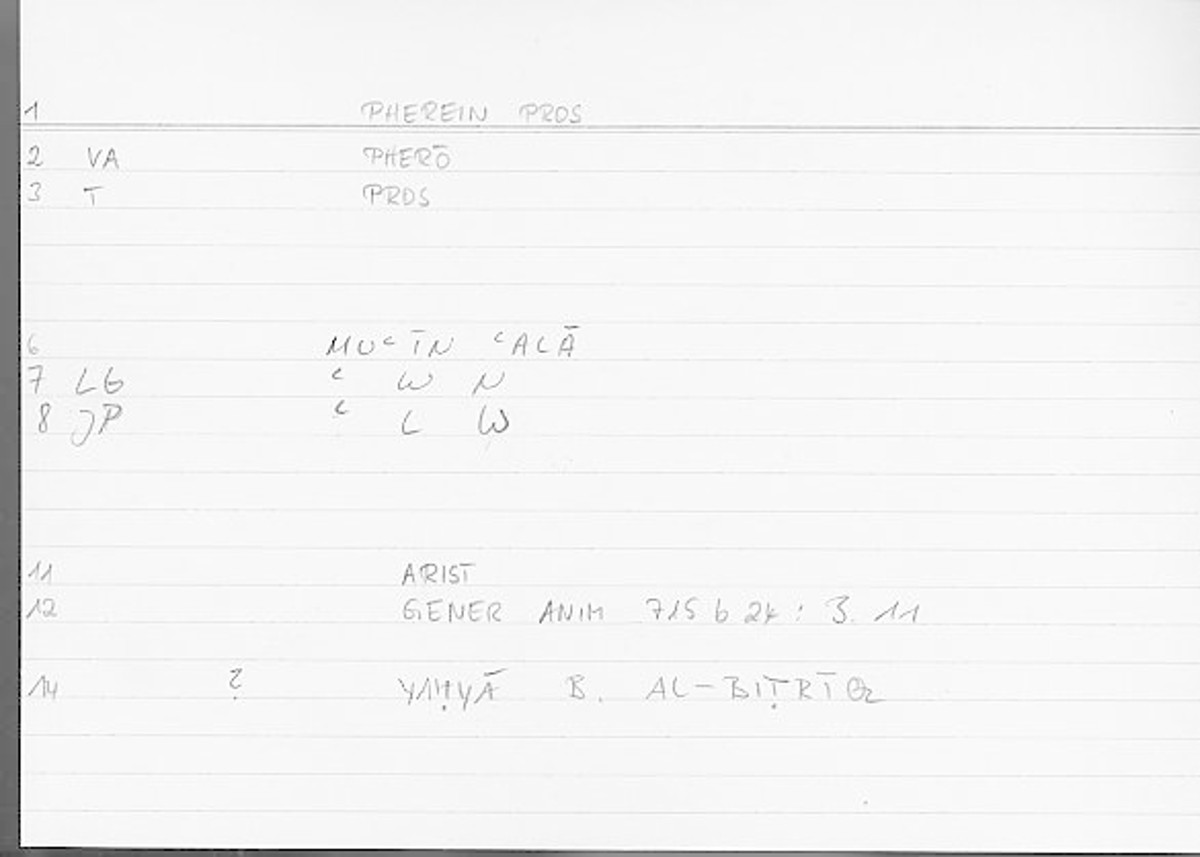 1 PHEREIN PROS
2 VA PHERŌ
3 T PROS
6 MUʿĪN ʿALĀ
7 LG ʿ W N
8 JP ʿ L W
11 ARIST
12 GENER ANIM 715 b 24 : 3. 11
14 ? YAḤYĀ B. AL-BIṬRĪQ